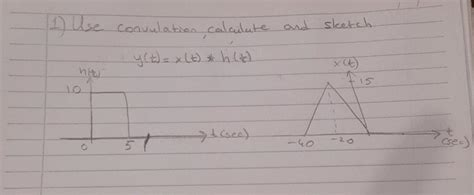 1) Use convulation, calculate and sketch
y(t) = x(t) * h(t)
h(t)
10
0
5
t(sec)
x(t)
15
-40
-20
t
(sec)